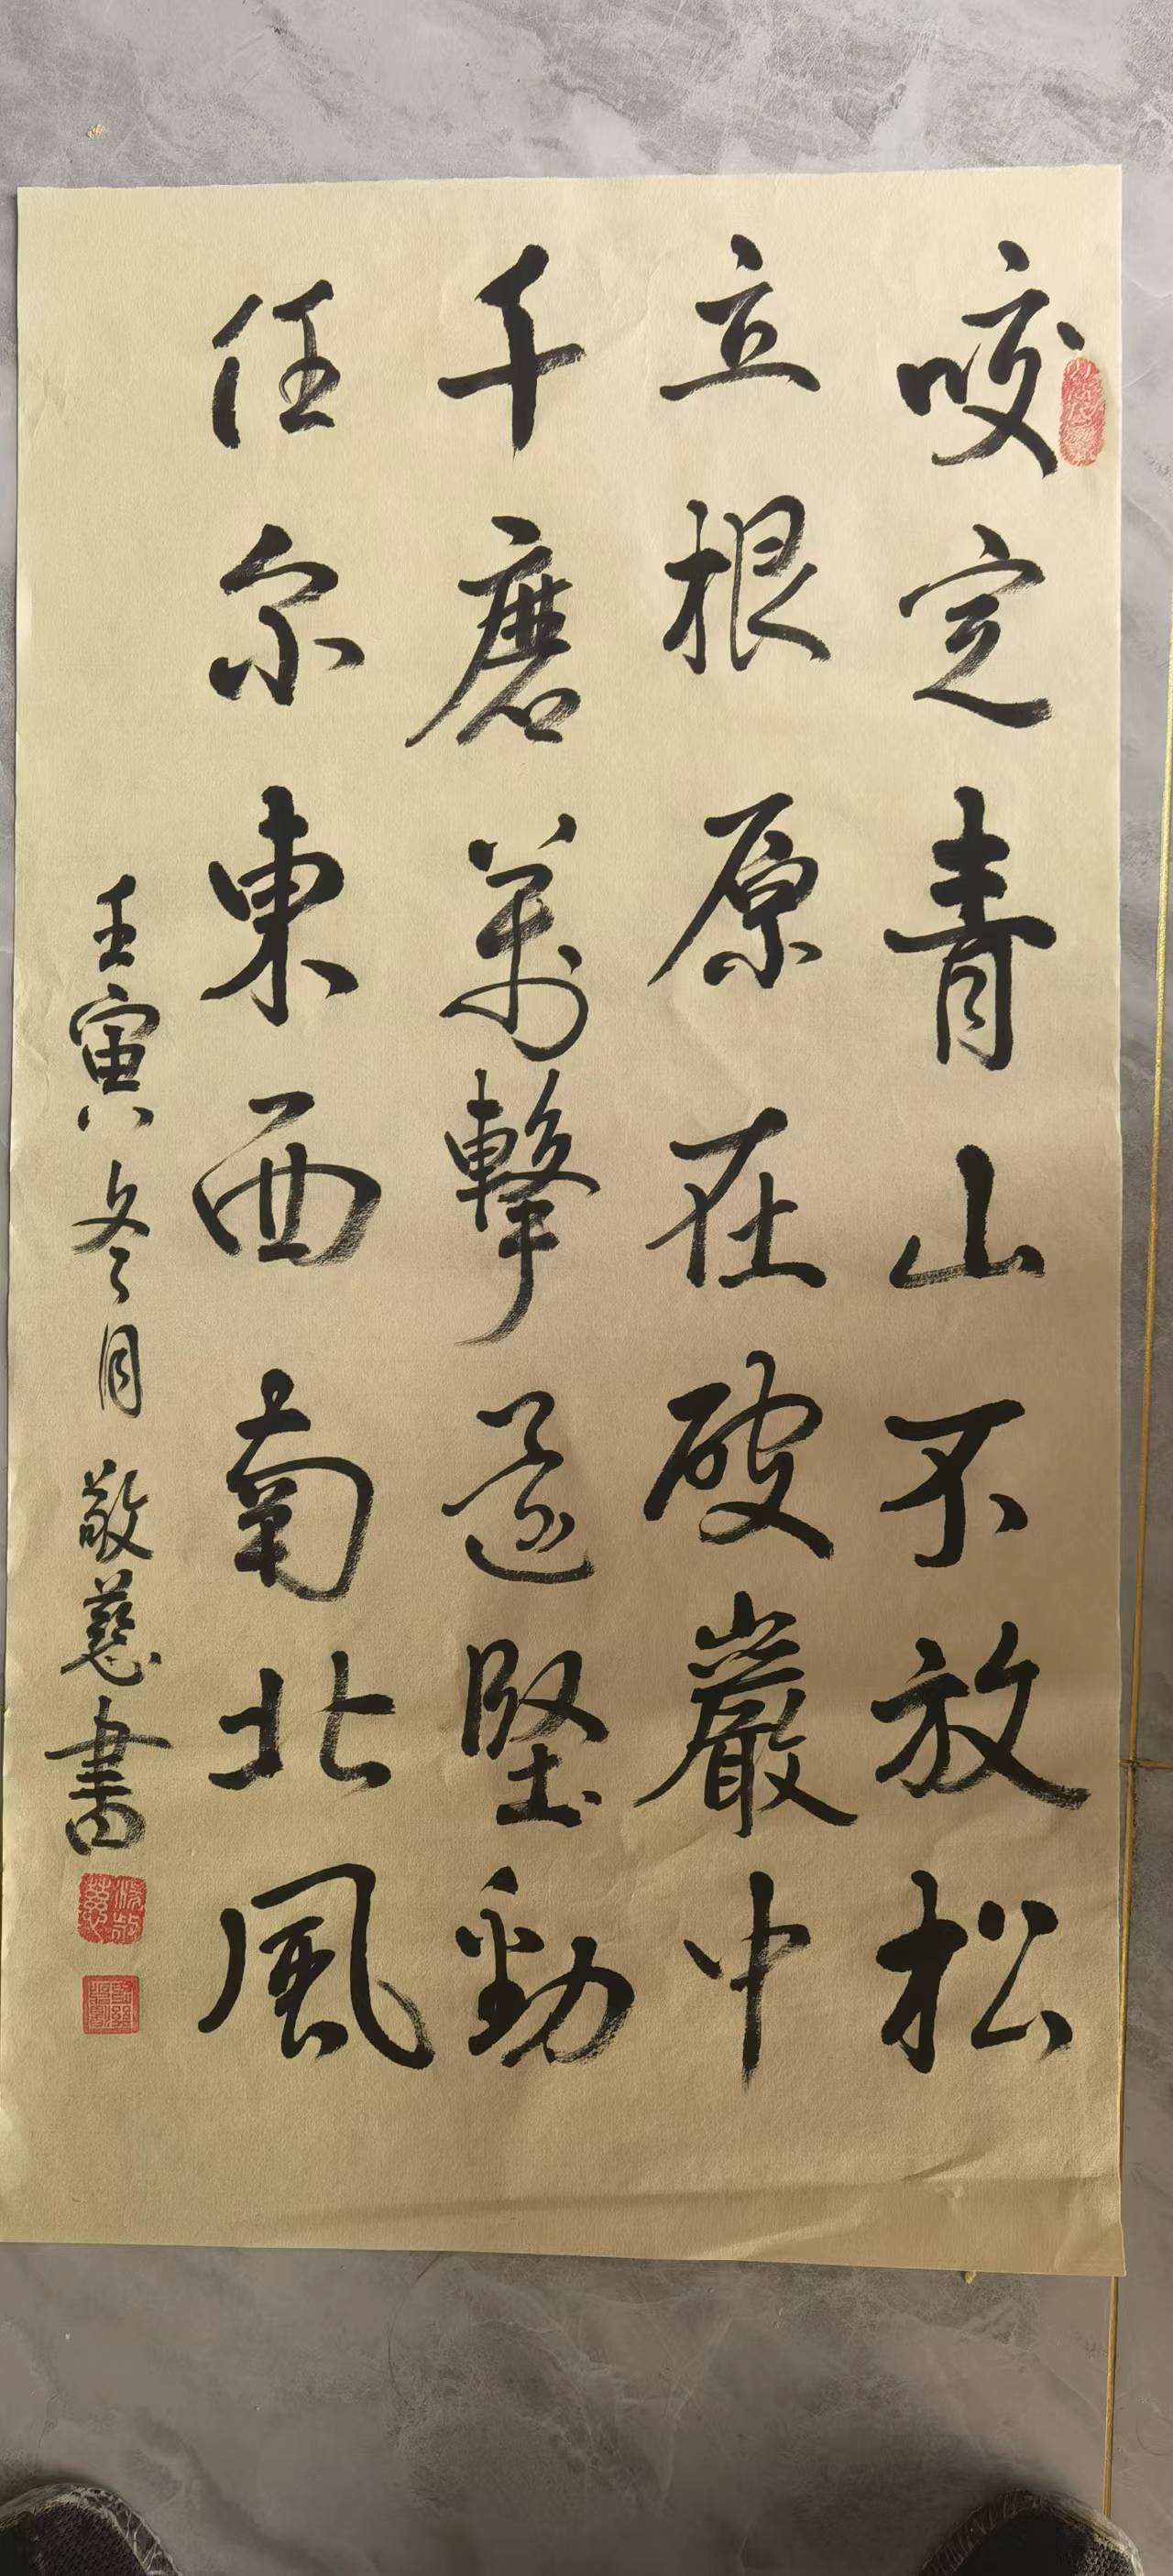 咬定青山不放松
立根原在破巖中
千磨萬擊還堅勁
任尔東西南北風
壬寅冬月敬慈書